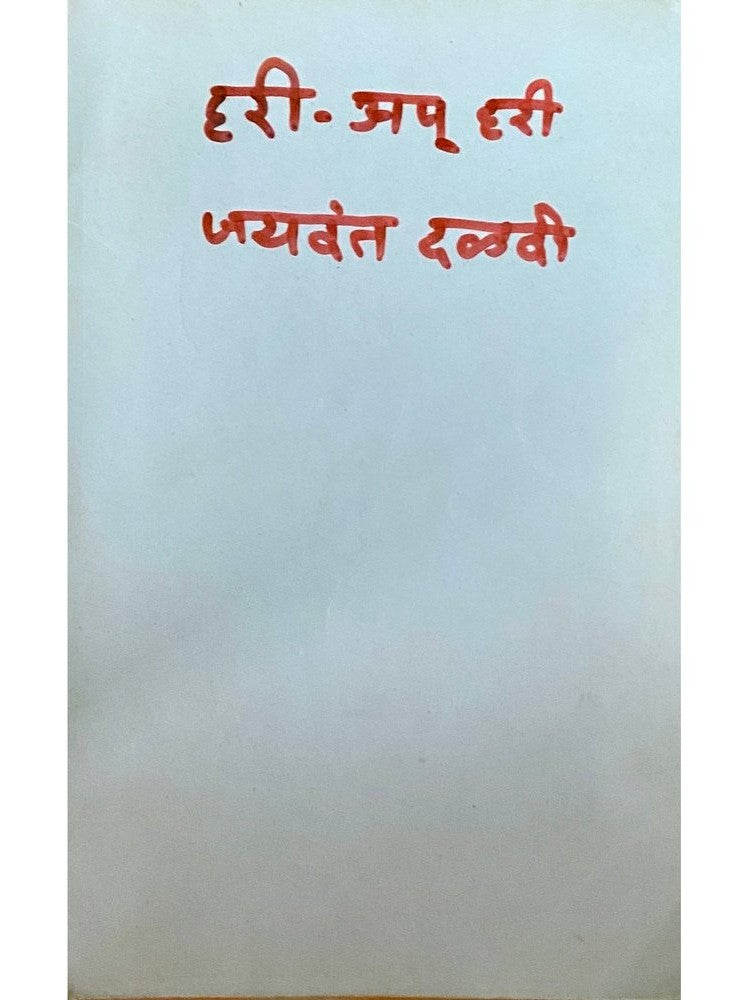 हरी-अप् हरी
जयवंत दळवी